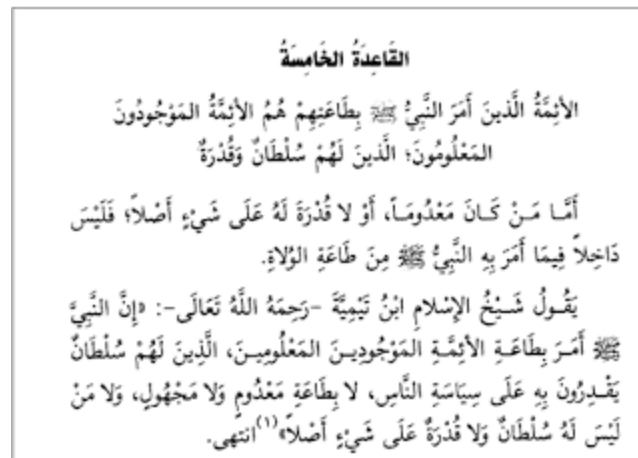 القَاعِدَةُ الخَامِسَةُ
الأئِمَّةُ الَّذينَ أَمَرَ النَّبِيُّ ﷺ بِطَاعَتِهِمْ هُمُ الأئِمَّةُ المَوْجُودُونَ
المَعْلُومُونَ؛ الَّذينَ لَهُمْ سُلْطَانٌ وَقُدْرَةٌ
أَمَّا مَنْ كَانَ مَعْدُومَاً، أَوْ لا قُدْرَةَ لَهُ عَلَى شَيْءٍ أَصْلاً؛ فَلَيْسَ
دَاخِلاً فِيمَا أَمَرَ بِهِ النَّبِيُّ ﷺ مِنَ طَاعَةِ الوُلاةِ.
يَقُولُ شَيْخُ الإِسْلامِ ابْنُ تَيْمِيَّةَ –رَحِمَهُ اللَّهُ تَعَالَى–: «إِنَّ النَّبِيَّ
ﷺ أَمَرَ بِطَاعَةِ الأئِمَّةِ المَوْجُودِينَ المَعْلُومِينَ، الَّذِينَ لَهُمْ سُلْطَانٌ
يَقْدِرُونَ بِهِ عَلَى سِيَاسَةِ النَّاسِ، لا بِطَاعَةِ مَعْدُومٍ وَلا مَجْهُولٍ، وَلا مَنْ
لَيْسَ لَهُ سُلْطَانٌ وَلا قُدْرَةٌ عَلَى شَيْءٍ أَصْلاً»(١) انتهى.